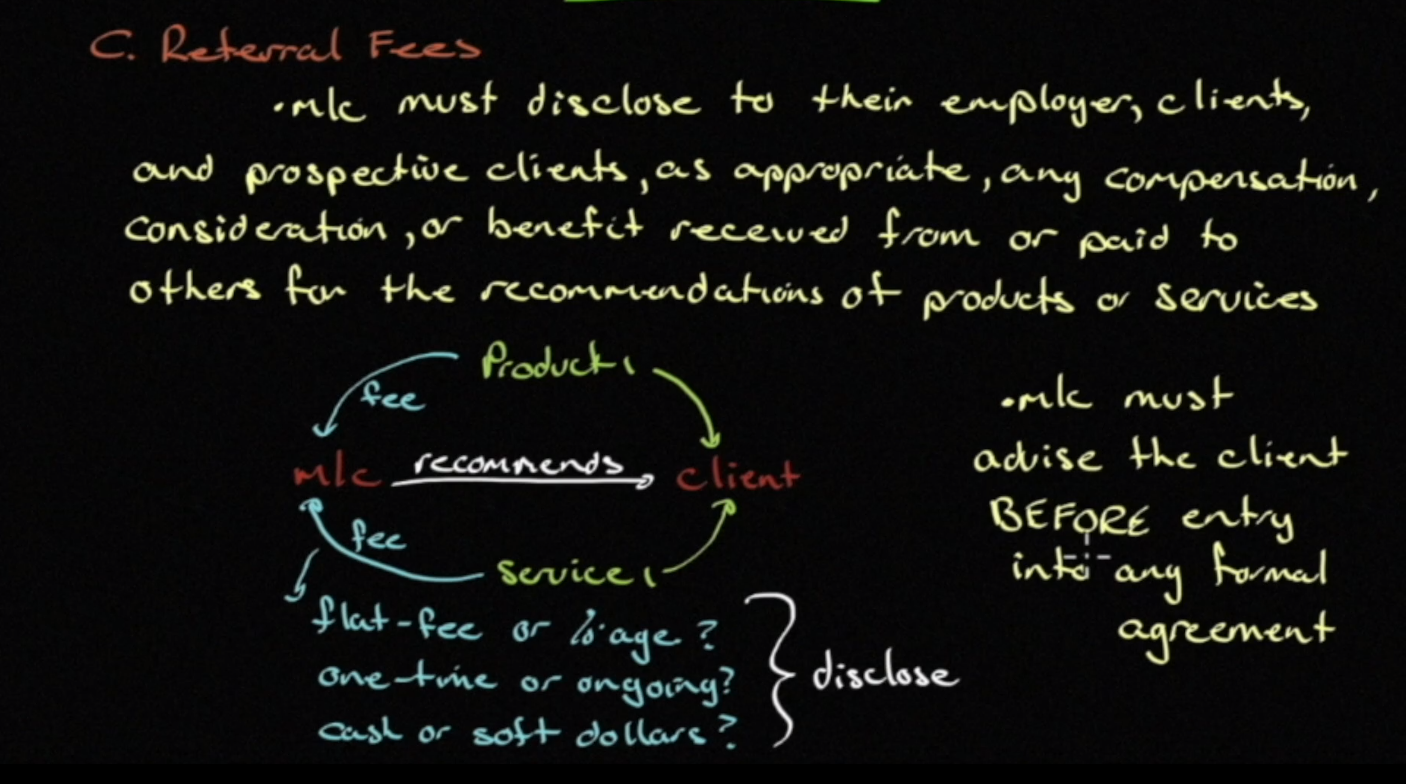 C. Referral Fees
• m/c must disclose to their employer, clients,
and prospective clients, as appropriate, any compensation,
consideration, or benefit received from or paid to
others for the recommendations of products or services
Product 1
fee
m/c recommends client
fee
Service 1
flat-fee or %'age?
one-time or ongoing?
cash or soft dollars?
disclose
• m/c must
advise the client
BEFORE entry
into any formal
agreement